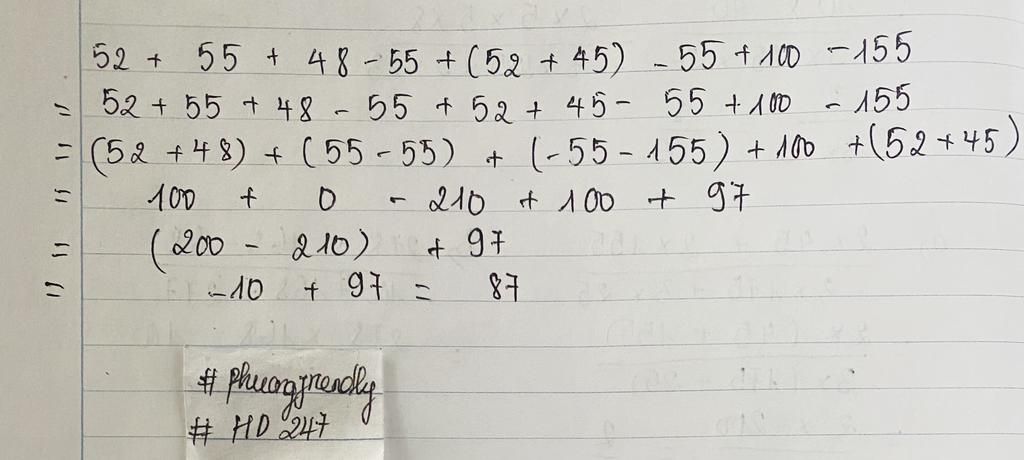 52 + 55 + 48 - 55 + (52 + 45) - 55 + 100 - 155
= 52 + 55 + 48 - 55 + 52 + 45 - 55 + 100 - 155
= (52 + 48) + (55 - 55) + (-55 - 155) + 100 + (52 + 45)
= 100 + 0 - 210 + 100 + 97
= (200 - 210) + 97
= -10 + 97 = 87
# phuongfriendly
# HD 247